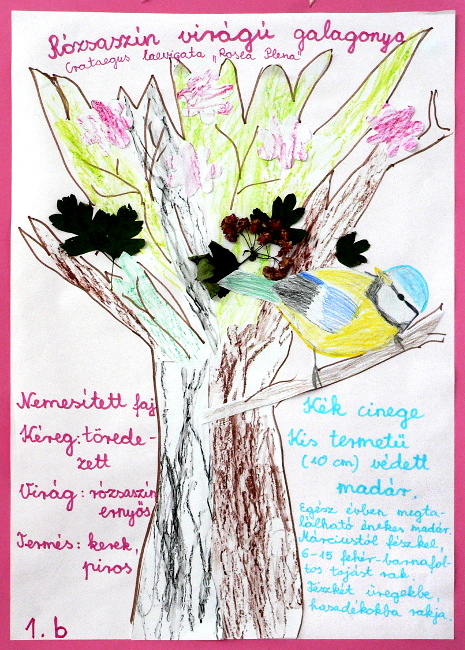 Rózsaszín virágú galagonya
Crataegus laevigata "Rosea Plena"
Nemesített faj
Kéreg: törede-
zett
Virág: rózsaszín
ernyős
Termés: kerek,
piros
1. b
Kék cinege
Kis termetű
(10 cm) védett
madár.
Egész évben megta-
lálható énekes madár.
Márciustól fészkel,
6-15 fehér-barnafol-
tos tojást rak.
Fészkét üregekbe,
hasadékokba rakja.